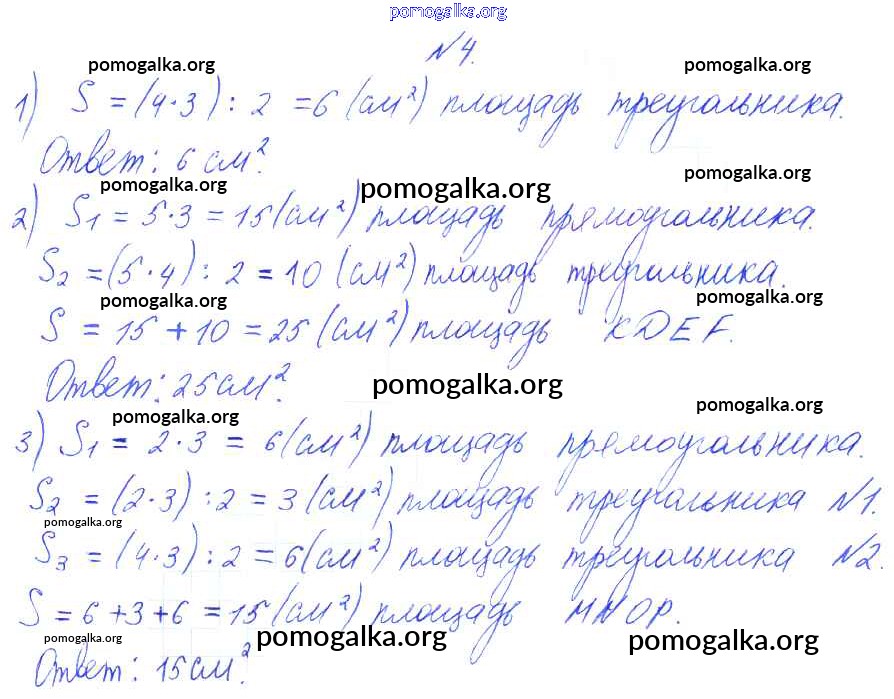 pomogalka.org
№4.
pomogalka.org pomogalka.org
1) S = (4·3) : 2 = 6 (см²) площадь треугольника.
Ответ: 6 см².
pomogalka.org pomogalka.org pomogalka.org
2) S1 = 5·3 = 15 (см²) площадь прямоугольника.
S2 = (5·4) : 2 = 10 (см²) площадь треугольника.
pomogalka.org pomogalka.org
S = 15 + 10 = 25 (см²) площадь KDEF.
Ответ: 25 см².
pomogalka.org
pomogalka.org pomogalka.org
3) S1 = 2·3 = 6 (см²) площадь прямоугольника.
S2 = (2·3) : 2 = 3 (см²) площадь треугольника №1.
pomogalka.org
S3 = (4·3) : 2 = 6 (см²) площадь треугольника №2.
S = 6 + 3 + 6 = 15 (см²) площадь MNOP.
pomogalka.org pomogalka.org pomogalka.org
Ответ: 15 см².